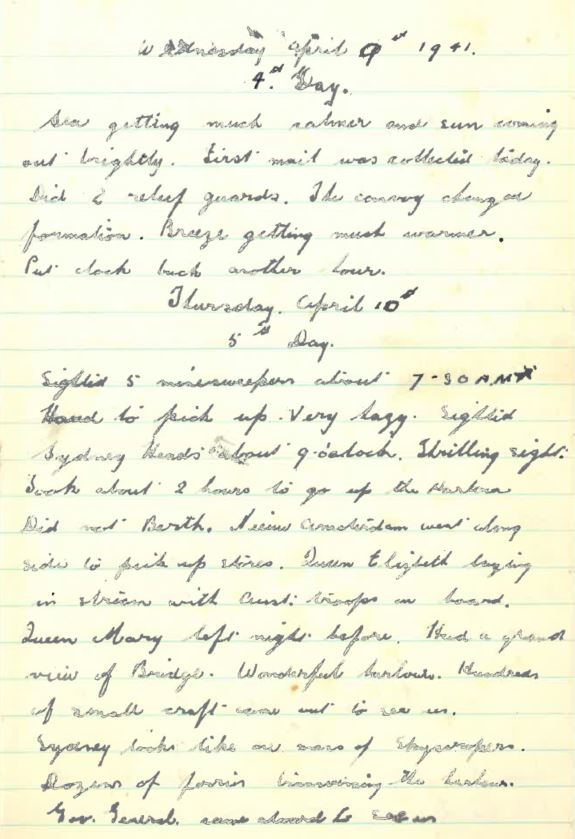 Wednesday April 9th 1941.
4th Day.
Sea getting much calmer and sun coming
out brightly. First mail was collected today.
Did 2 relief guards. The convoy changed
formation. Breeze getting much warmer.
Put clock back another hour.
Thursday. April 10th
5th Day.
Sighted 5 minesweepers about 7-30 A.M.
Hard to pick up. Very hazy. Sighted
Sydney Heads about 9 o'clock. Thrilling sight.
Took about 2 hours to go up the Harbour
Did not Berth. Nieuw Amsterdam went along
side to pick up stores. Queen Elizbeth laying
in stream with Aust: troops on board.
Queen Mary left night before. Had a grand
view of Bridge. Wonderful harbour. Hundreds
of small craft came out to see us.
Sydney looks like one mass of Skyscrapers.
Dozens of ferries the harbour.
Gov. General. came aboard to see us